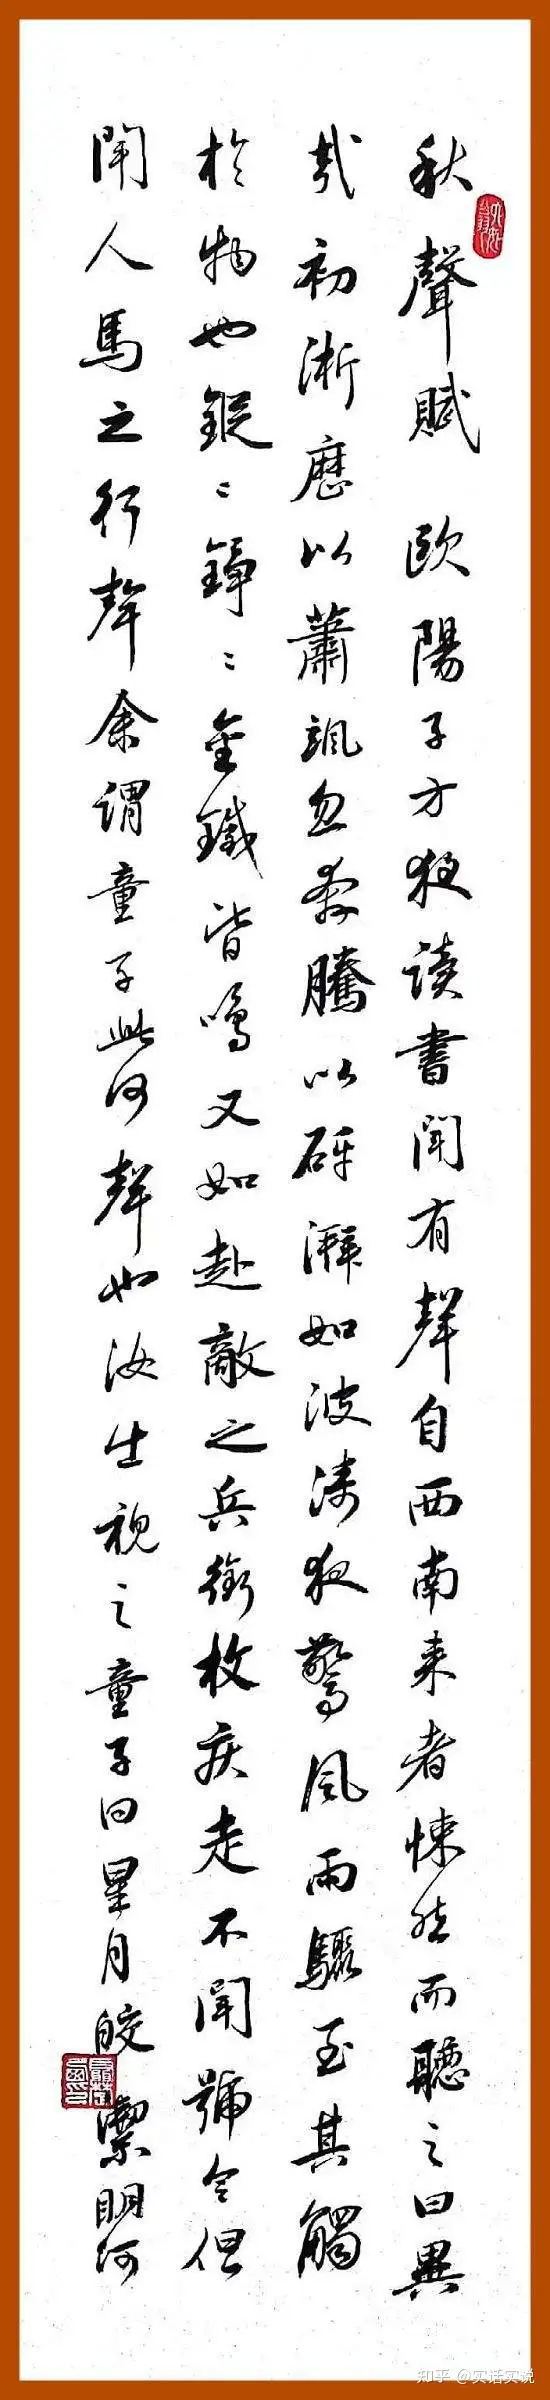 秋聲賦 歐陽子方夜读書聞有聲自西南来者悚然而聽之曰異
哉初淅瀝以蕭颯忽奔騰以砰湃如波涛夜驚風雨驟至其觸
於物也鏦〻錚〻金鐵皆鳴又如赴敵之兵銜枚疾走不聞號令但
聞人馬之行聲余謂童子此何聲也汝出視之童子曰星月皎潔明河
知乎 @实话实说